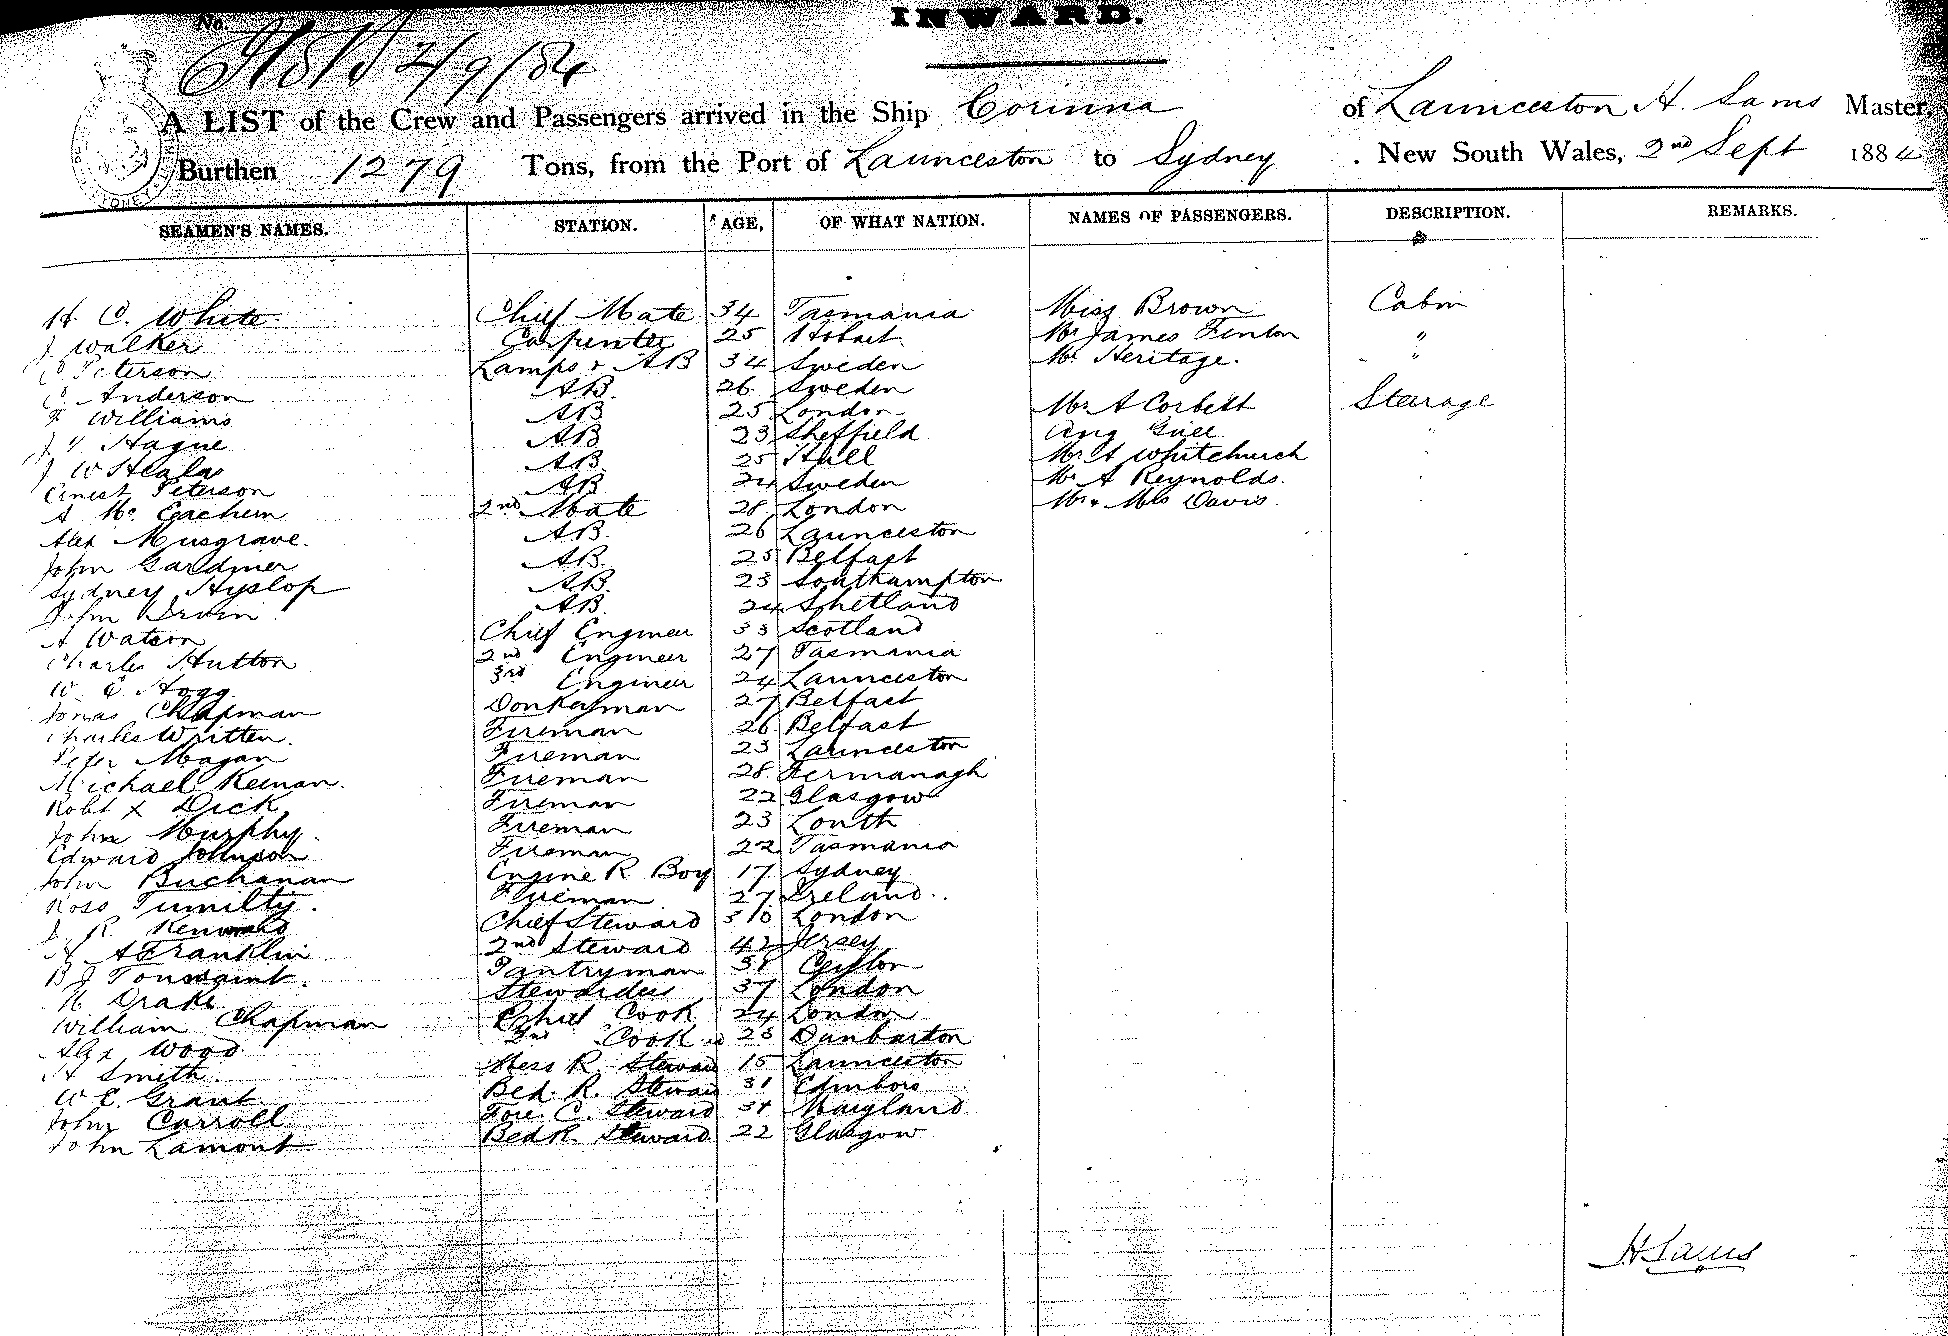 INWARD.
No.
2/9/84
A LIST of the Crew and Passengers arrived in the Ship Corinna of Launceston H. Sams Master,
Burthen 1279 Tons, from the Port of Launceston to Sydney . New South Wales, 2nd Sept 1884
SEAMEN'S NAMES. STATION. AGE, OF WHAT NATION. NAMES OF PASSENGERS. DESCRIPTION. REMARKS.
H. C. White Chief Mate 34 Tasmania Miss Brown Cabin
J. Walker Carpenter 25 Hobart Mr James Fenton "
C Peterson Lamps & AB 34 Sweden Mr Heritage. "
C. Anderson AB. 26 Sweden
F Williams AB 25 London Mr A Corbett Stearage
J Hague AB 23 Sheffield
J W AB. 25 Hull Mr A Whitchurch
Ernest Peterson AB 24 Sweden Mr A Reynolds.
A Mc Eachern 2nd Mate 28 London Mr & Mrs Davis.
Alex Musgrave. AB. 26 Launceston
John Gardiner AB. 25 Belfast
Sydney Hyslop AB. 23 Southampton
John Irwin AB. 24 Shetland
A Watson Chief Engineer 33 Scotland
Charles Hutton 2nd Engineer 27 Tasmania
W. E. Hogg. 3rd Engineer 24 Launceston
Jonas Chapman Donkeyman 27 Belfast
Charles Written. Fireman 26 Belfast
Peter Magan Fireman 23 Launceston
Michael Keenan. Fireman 28 Fermanagh
Robt x Dick Fireman 22 Glasgow
John Murphy. Fireman 23 Louth
Edward Johnson Fireman 22 Tasmania
John Buchanan Engine R Boy 17 Sydney
Ross Tumilty. Fireman 27 Ireland.
J. R. Chief Steward London
H A Franklin 2nd Steward 42 Jersey
B J Toussaint. Pantryman 38
H Drake Stewardess 37 London
William Chapman Chief Cook 24 London
Alex Wood Cook 23 Dunbarton
H Smith. Mess R. Steward 15 Launceston
W C. Grant Bed. R. Steward 31 Edinboro
John Carroll Fore. C. Steward 34 Maryland
John Lamont Bed R. Steward 22 Glasgow
H Sams